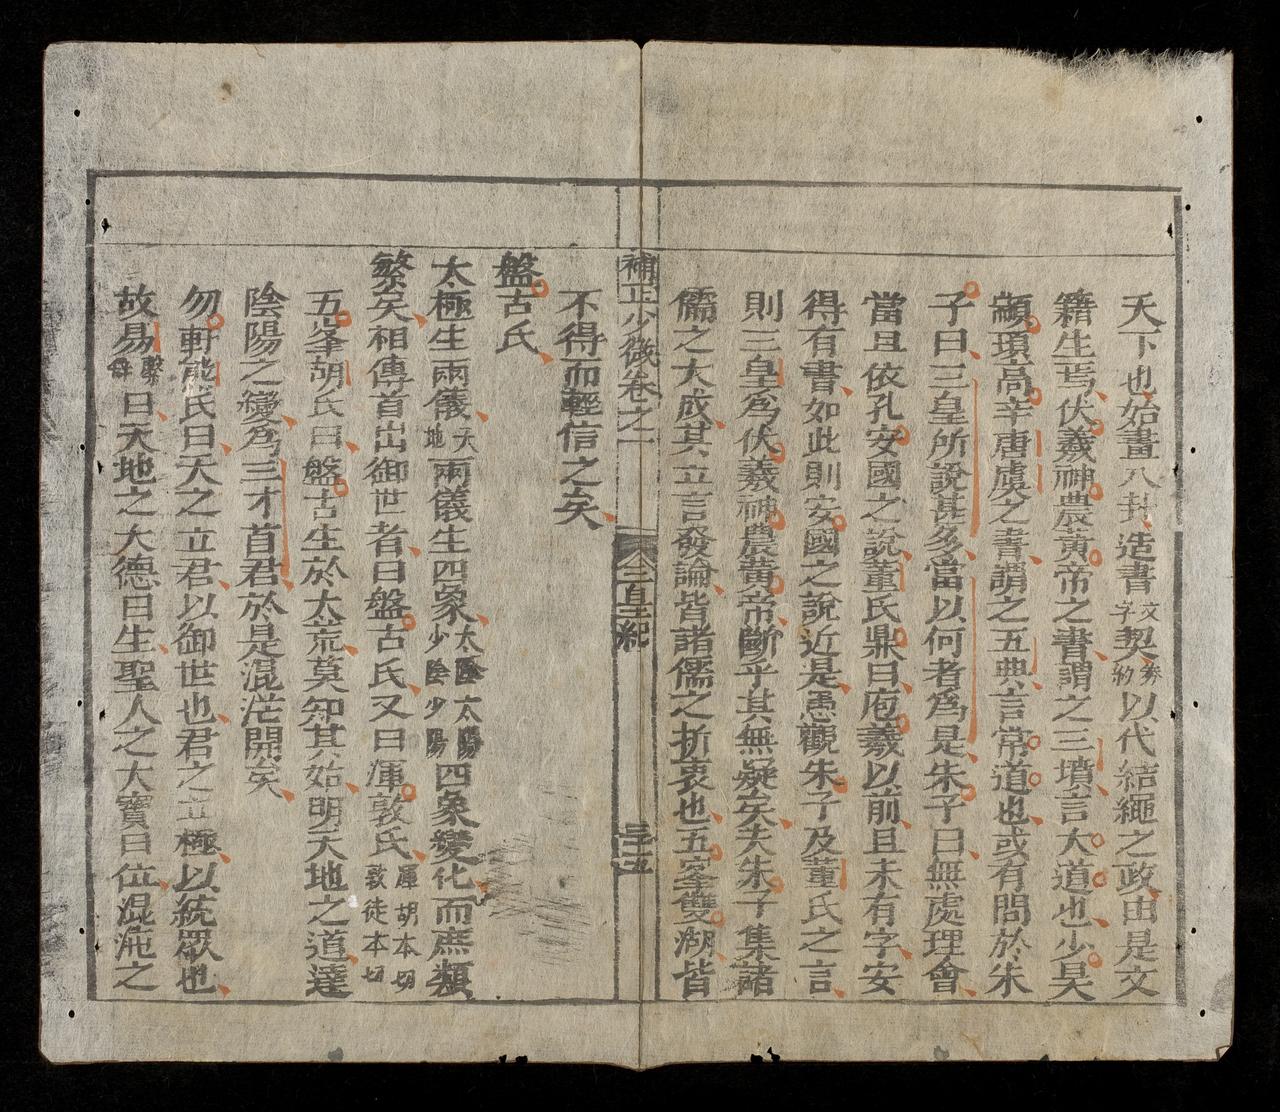 天下也始畫八卦造書文字契券約以代結繩之政由是文
籍生焉伏羲神農黃帝之書謂之三墳言大道也少昊
顓頊高辛唐虞之書謂之五典言常道也或有問於朱
子曰三皇所說甚多當以何者爲是朱子曰無處理會
當且依孔安國之說董氏鼎曰庖羲以前且未有字安
得有書如此則安國之說近是愚觀朱子及董氏之言
則三皇爲伏羲神農黃帝斷乎其無疑矣夫朱子集諸
儒之大成其立言發論皆諸儒之折衷也五峯雙湖皆
補正少微卷之一 三皇紀 三十五
不得而輕信之矣
盤古氏
太極生兩儀天地兩儀生四象太陰太陽少陰少陽四象變化而庶類
繁矣相傳首出御世者曰盤古氏又曰渾敦氏渾胡本切敦徒本切
五峯胡氏曰盤古生於太荒莫知其始明天地之道達
陰陽之變爲三才首君於是混茫開矣
勿軒熊氏曰天之立君以御世也君之立極以統眾也
故易繫辭曰天地之大德曰生聖人之大寶曰位混沌之